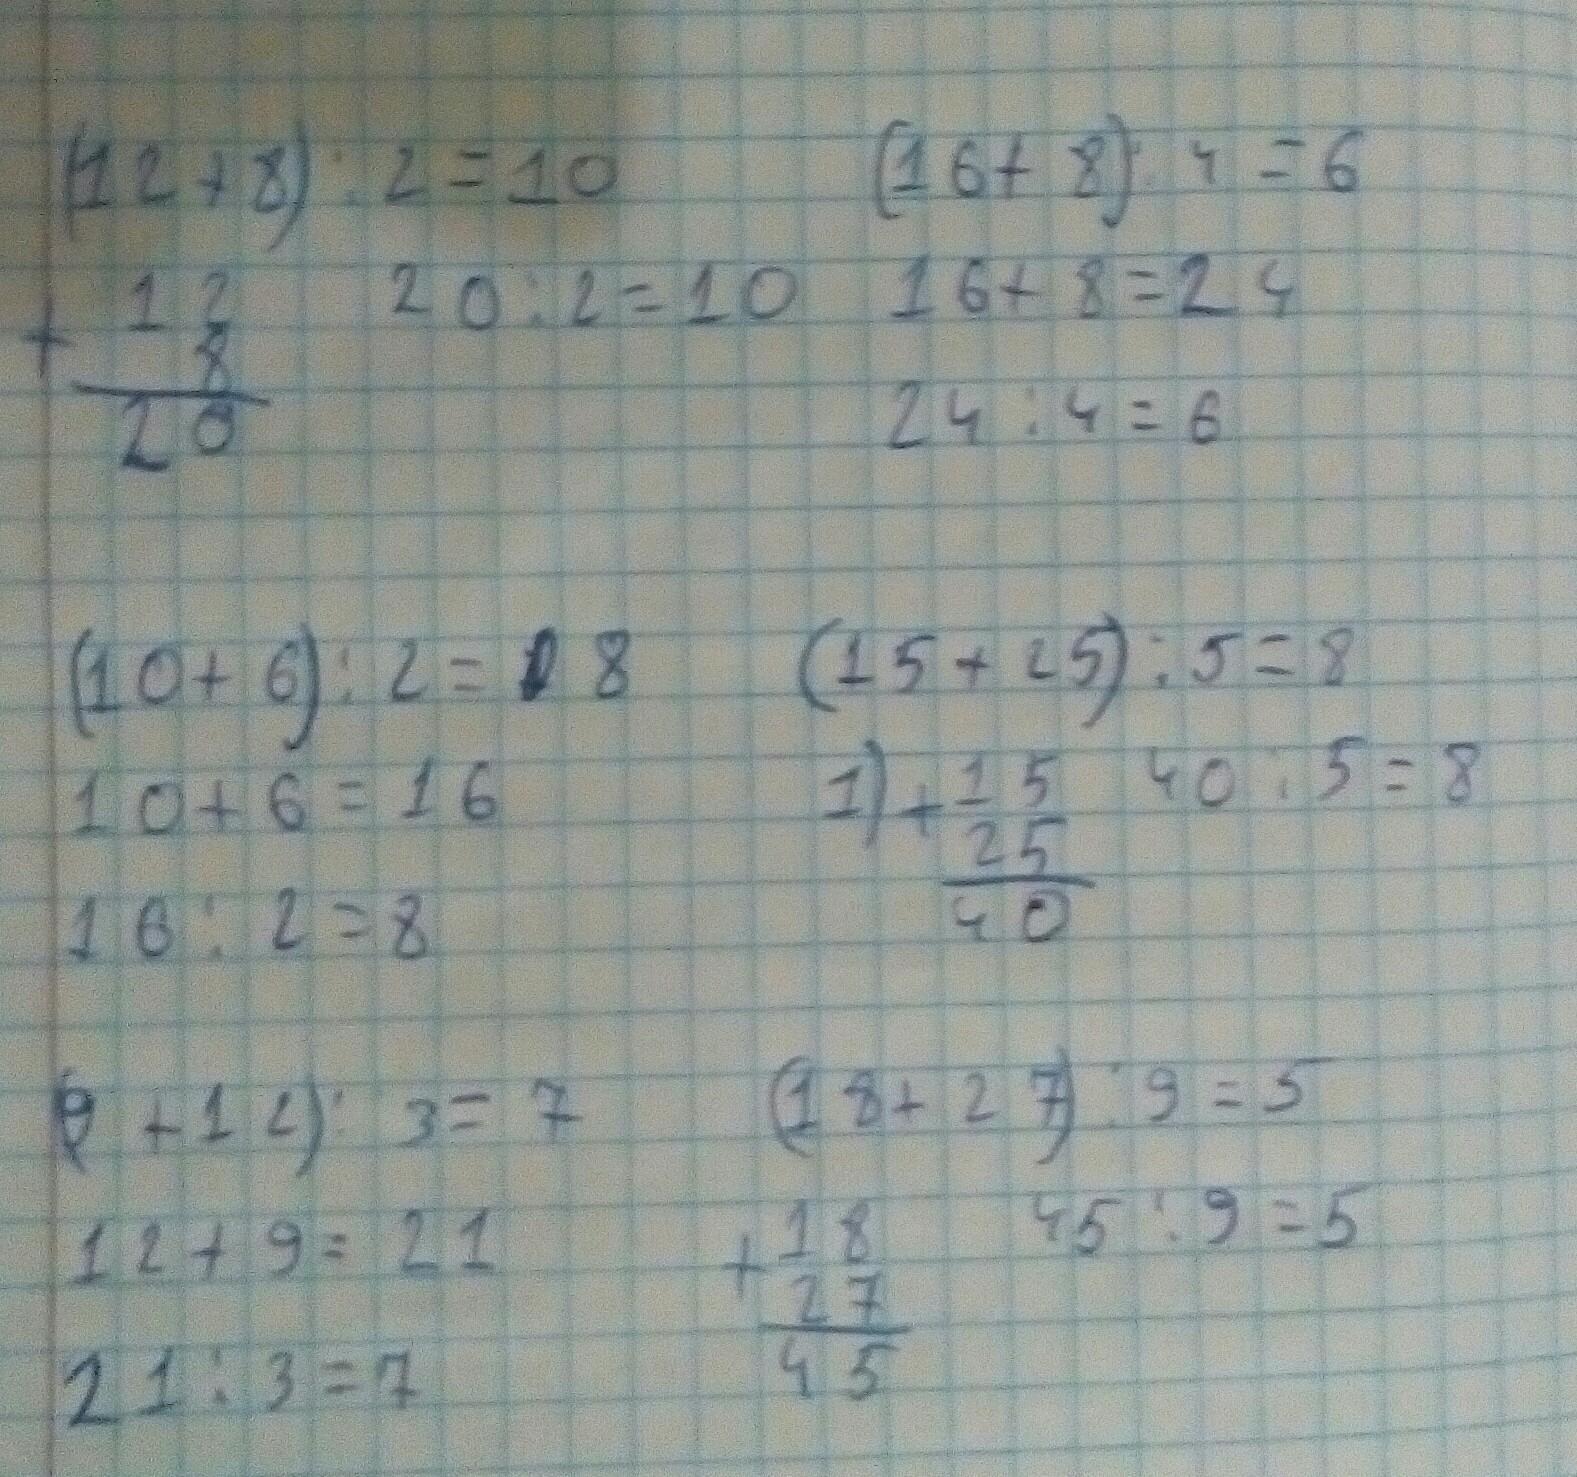 (12+8) : 2 = 10
+ 12
8
20
20 : 2 = 10
(16+8) : 4 = 6
16+8=24
24 : 4 = 6
(10+6) : 2 = 8
10+6=16
16 : 2 = 8
(15+25) : 5 = 8
1) + 15
25
40
40 : 5 = 8
(9+12) : 3 = 7
12+9=21
21 : 3 = 7
(18+27) : 9 = 5
+ 18
27
45
45 : 9 = 5